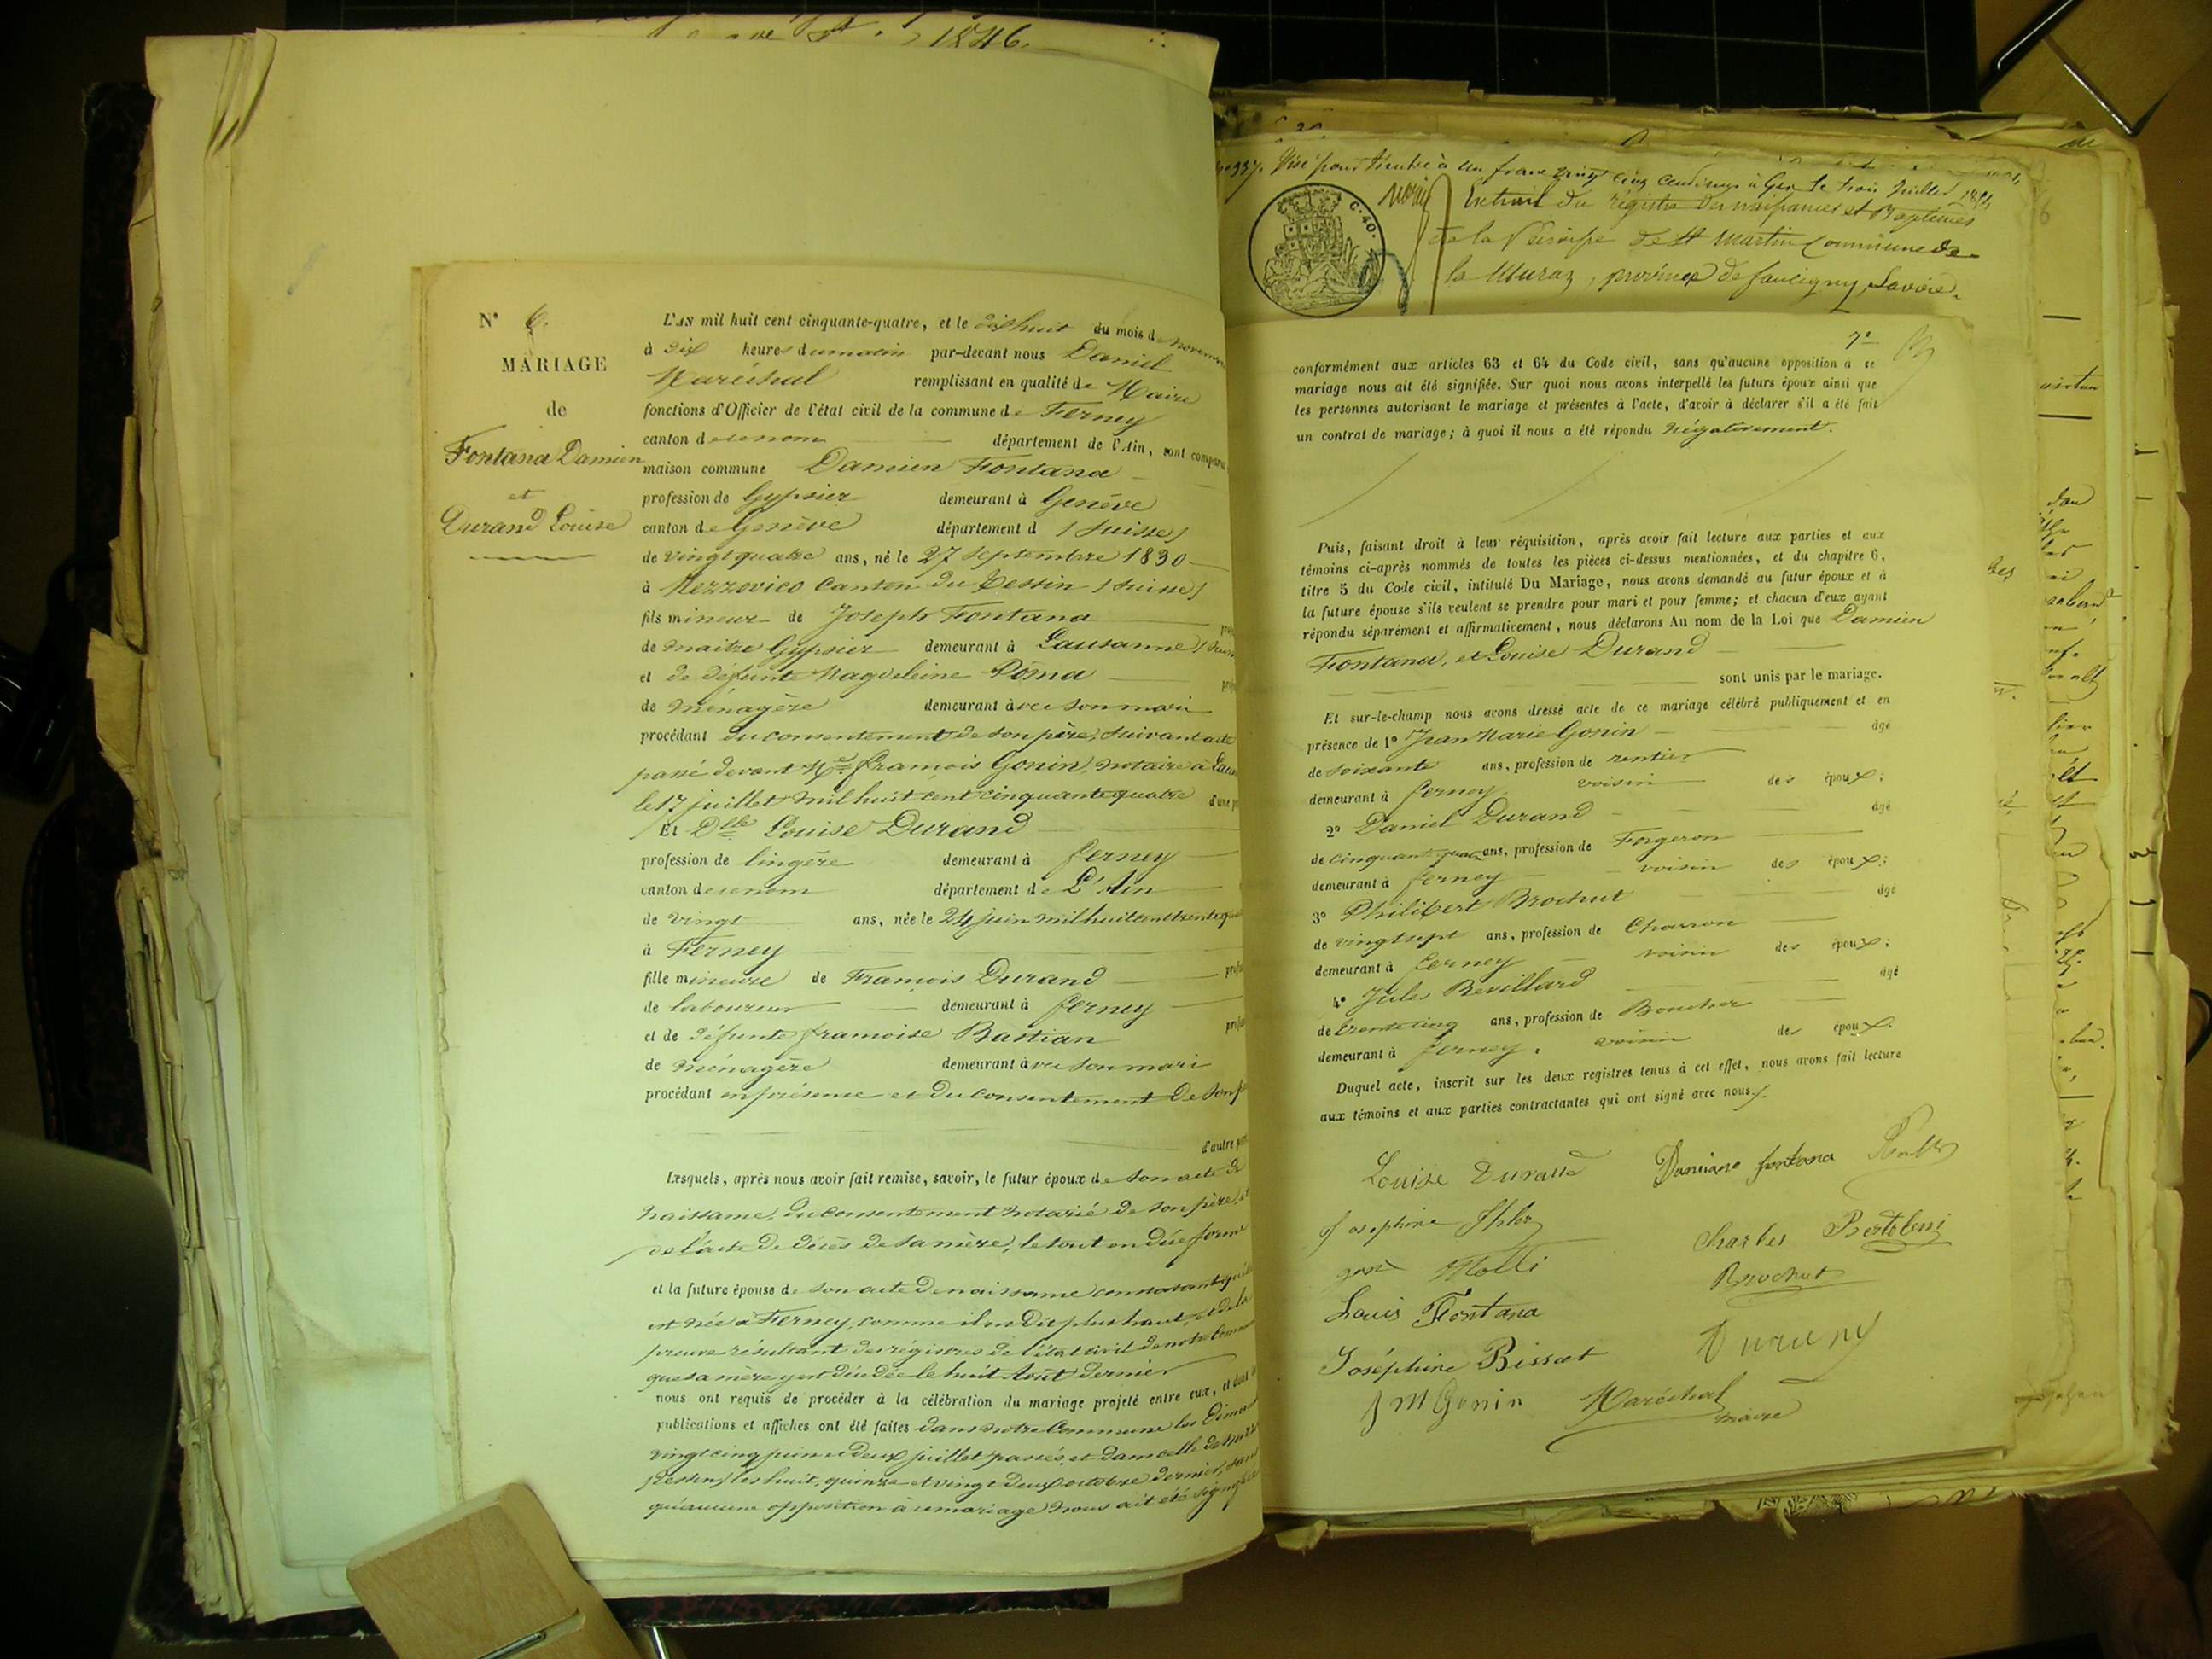 1846.
N° 6.
MARIAGE
de
Fontana Damien
et
Durand Louise
L'AN mil huit cent cinquante-quatre, et le dix huit du mois de novem
à dix heures du matin par-devant nous Daniel
Maréchal remplissant en qualité de Maire
fonctions d'Officier de l'état civil de la commune de Ferney
canton de ce nom département de l'Ain, sont compar
maison commune Damien Fontana
profession de Gypsier demeurant à Genève
canton de Genève département d (Suisse)
de vingt quatre ans, né le 27 Septembre 1830
à Mezzovico Canton du Tessin (Suisse)
fils mineur de Joseph Fontana
de maitre Gypsier demeurant à Lausanne
et de défunte Magdeleine Roma
de ménagère demeurant avec son mari
procédant du consentement de son père, suivant acte
passé devant Me François Gonin, notaire à
le 17 juillet mil huit cent cinquante quatre
Et Dlle Louise Durand
profession de lingère demeurant à ferney
canton de ce nom département de L'Ain
de vingt ans, née le 24 juin mil huit cent trente
à Ferney
fille mineure de François Durand
de laboureur demeurant à ferney
et de défunte françoise Bastian
de ménagère demeurant avec son mari
procédant en présence et du consentement de son
d'autre part
Lesquels, après nous avoir fait remise, savoir, le futur époux de son acte de
naissance, du consentement notarié de son père, et
de l'acte de décès de sa mère, le tout en düe forme
et la future épouse de son acte de naissance constatant
est née à Ferney, comme il est dit plus haut, et de la
preuve résultant des régistres de l'état civil de notre
que sa mère y est décédée le huit Aout dernier
nous ont requis de procéder à la célébration du mariage projeté entre eux, et dont
publications et affiches ont été faites dans notre Commune les
vingt cinq juin et deux juillet passés, et dans celle de
les huit, quinze et vingt deux octobre dernier,
qu'aucune opposition à ce mariage nous ait été
Visé pour timbre à un franc vingt cinq centimes à Gex le trois juillet
C. 40.
Extrait du régistre des naissances et Baptêmes
de la Paroisse de St Martin Commune de
la Muraz, province de faucigny, Savoie.
7e
conformément aux articles 63 et 64 du Code civil, sans qu'aucune opposition à ce
mariage nous ait été signifiée. Sur quoi nous avons interpellé les futurs époux ainsi que
les personnes autorisant le mariage et présentes à l'acte, d'avoir à déclarer s'il a été fait
un contrat de mariage; à quoi il nous a été répondu négativement.
Puis, faisant droit à leur réquisition, après avoir fait lecture aux parties et aux
témoins ci-après nommés de toutes les pièces ci-dessus mentionnées, et du chapitre 6,
titre 5 du Code civil, intitulé Du Mariage, nous avons demandé au futur époux et à
la future épouse s'ils veulent se prendre pour mari et pour femme; et chacun d'eux ayant
répondu séparément et affirmativement, nous déclarons Au nom de la Loi que Damien
Fontana, et Louise Durand
sont unis par le mariage.
Et sur-le-champ nous avons dressé acte de ce mariage célébré publiquement et en
présence de 1° Jean Marie Gonin âgé
de soixante ans, profession de rentier
demeurant à ferney voisin des époux;
2° Daniel Durand âgé
de cinquante quatre ans, profession de Forgeron
demeurant à ferney voisin des époux;
3° Philibert Brochut âgé
de vingt sept ans, profession de Charron
demeurant à ferney voisin des époux;
4° Jules Revillard âgé
de trente cinq ans, profession de Boucher
demeurant à ferney, voisin des époux.
Duquel acte, inscrit sur les deux registres tenus à cet effet, nous avons fait lecture
aux témoins et aux parties contractantes qui ont signé avec nous.
Louise Durand Damiano fontana
Josephine
Charles Bertoleni
Motti
Brochut
Louis Fontana
Joséphine Bissat
J M Gonin Maréchal
maire